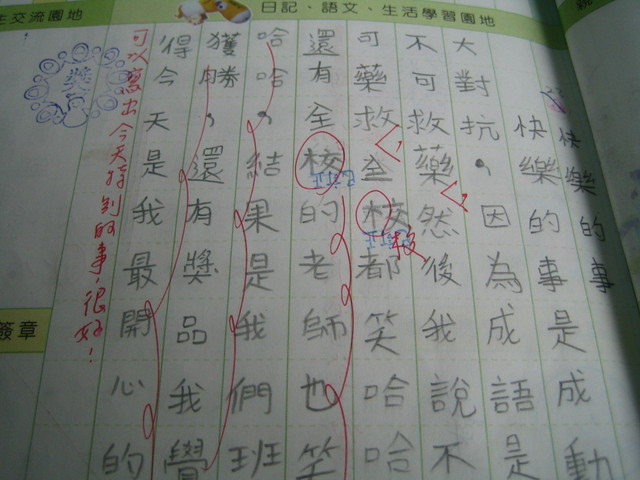 生交流園地
日記、語文、生活學習園地
親
快樂的事
快樂的事是成動
大對抗，因為成語是
不可救藥然後我說不
可藥救全校都笑哈哈
校
還有全校的老師也笑
哈哈，結果是我們班
獲勝，還有獎品我覺
得今天是我最開心的
可以寫出今天特別的事，很好！
獎
簽章